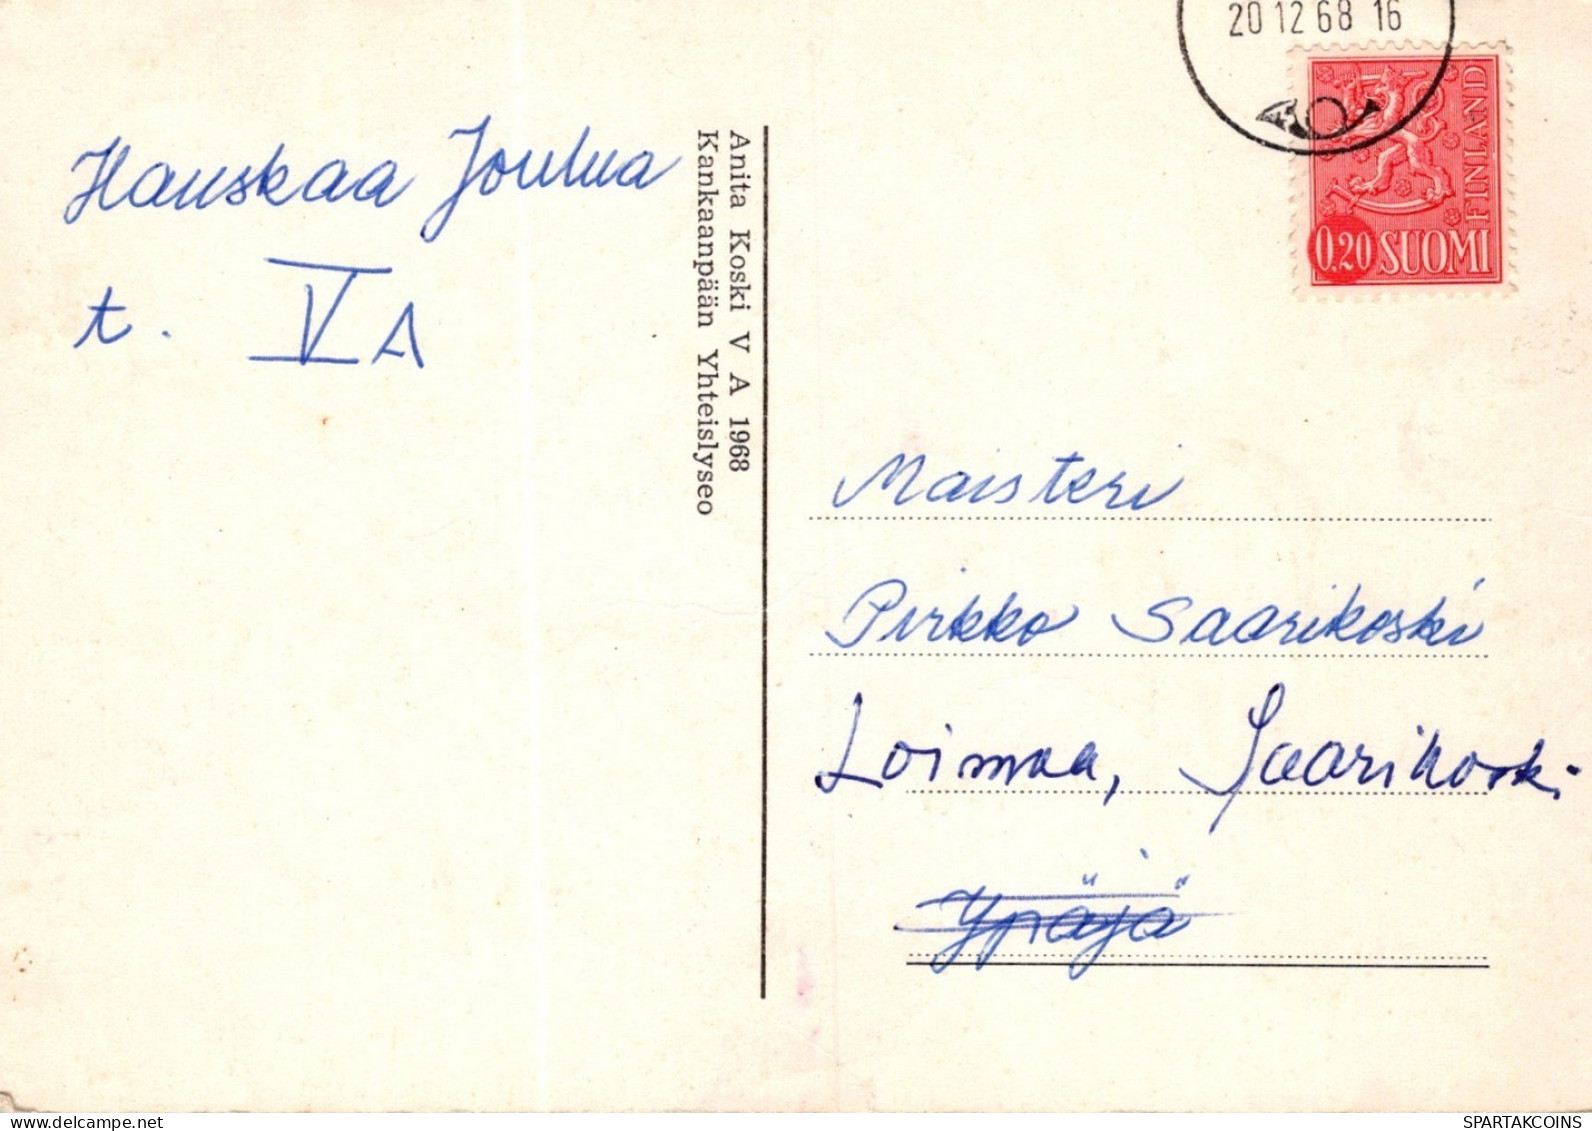 20 12 68 16
FINLAND
0,20 SUOMI
Hauskaa Joulua
t. V A
Anita Koski V A 1968
Kankaanpään Yhteislyseo
Maisteri
Pirkko Saarikoski
Loimaa, Saarikoski
Ypäjä
SPARTAKCOINS